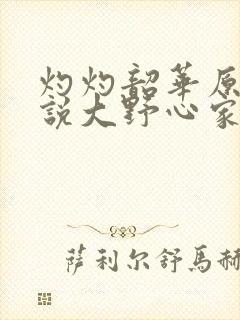 灼灼韶華原
說大野心家
薩利尔舒馬赫